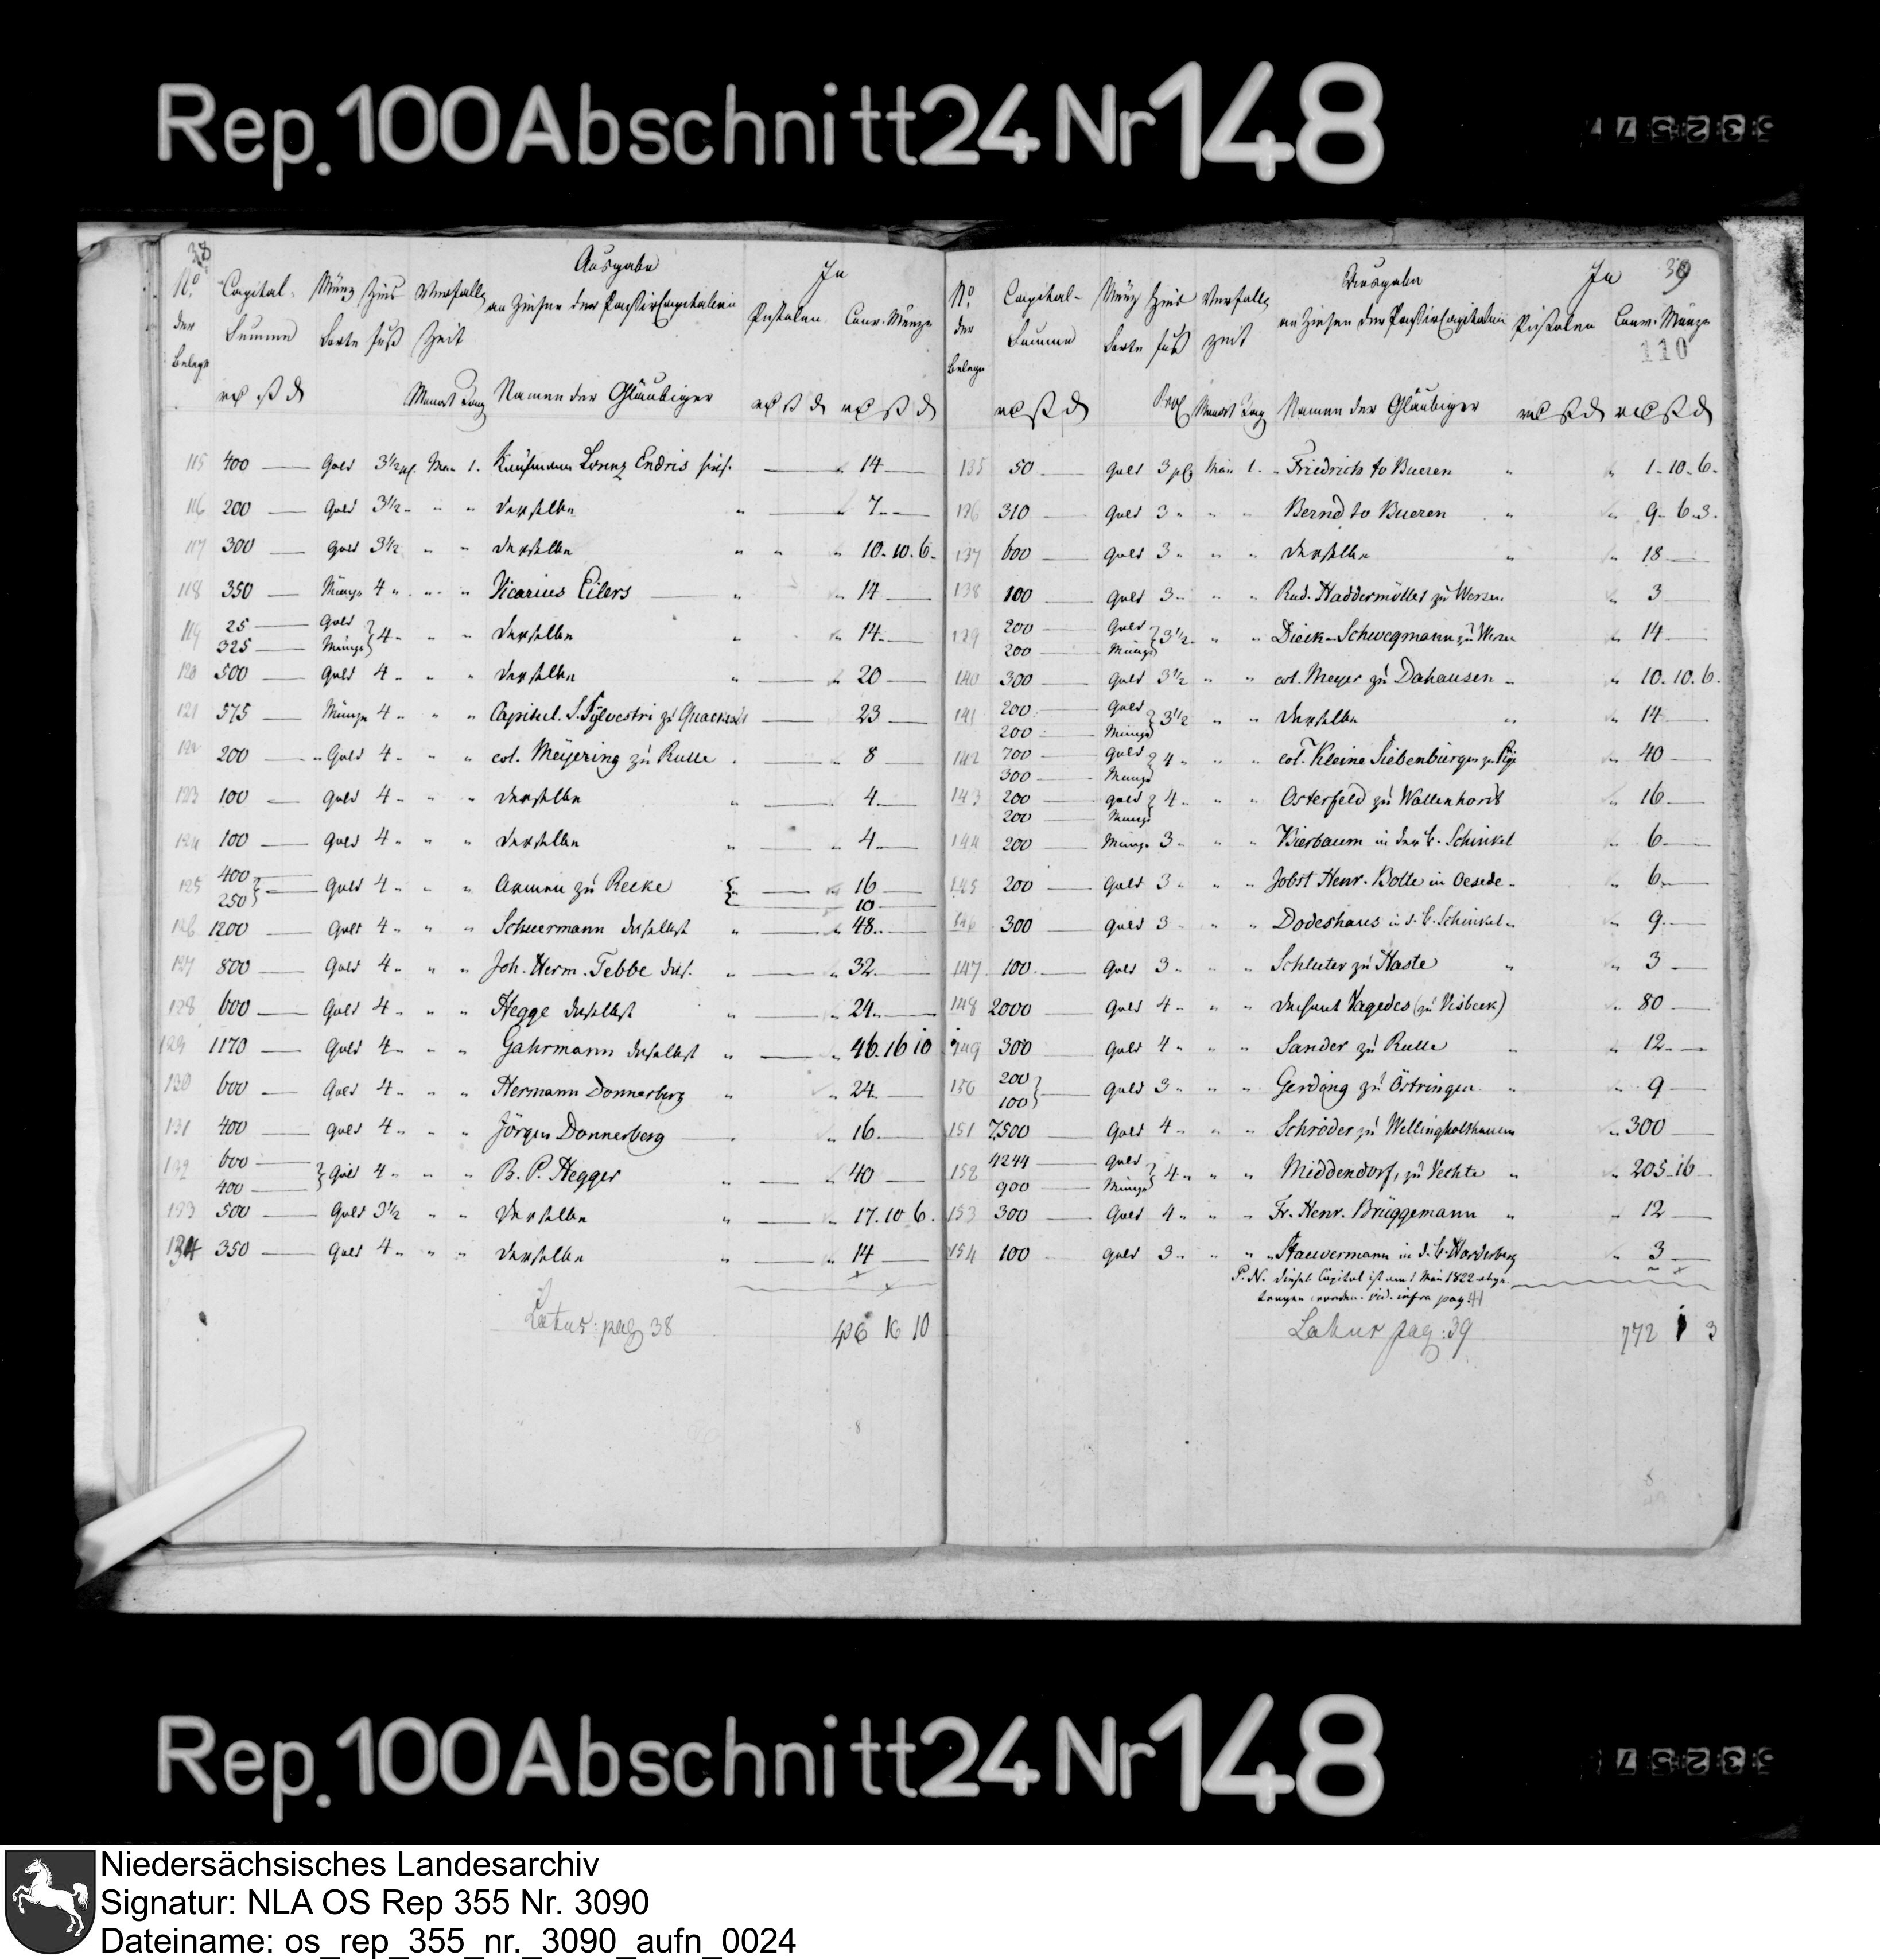 Rep. 100 Abschnitt 24 Nr 148
38
Ausgabe
In
No. Capital- Münz Zins Verfall- an Zinsen der Passiv Capitalien Pistolen Conv. Münze
der Summe Sorte fuß Zeit
Belege
Monat Tag Namen der Gläubiger
115 400 — Gold 3½ pC. Mai 1. Kaufmann Lorenz Endris hies. — 14 —
116 200 — Gold 3½ " " " derselbe " — 7 —
117 300 — Gold 3½ " " derselbe " " " 10. 10. 6.
118 350 — Münze 4 " " " Vicarius Eilers — " " 14 —
119 25 — Gold
325 — Münze } 4 " " " derselbe " " 14 —
120 500 — Gold 4 " " " derselbe " — " 20 —
121 575 — Münze 4 " " " Capitul. S. Sylvestri zu Quackenb. — 23 —
122 200 — " Gold 4 " " " col. Meyering zu Rulle . — 8 —
123 100 — Gold 4 " " " derselbe " — 4 —
124 100 — Gold 4 " " " derselbe " — " 4 —
125 400
250 } — Gold 4 " " " Armen zu Recke { — 16 —
10 —
126 1200 — Gold 4 " " " Schuermann daselbst " — " 48 —
127 800 — Gold 4 " " " Joh. Herm. Tebbe das. " — " 32 —
128 600 — Gold 4 " " " Hegge daselbst " — " 24 —
129 1170 — Gold 4 " " " Gahrmann daselbst " — " 46. 16 10
130 600 — Gold 4 " " " Hermann Donnerberg " " 24 —
131 400 — Gold 4 " " " Jörgen Donnerberg — " " 16 —
132 600 —
400 — } Gold 4 " " " B. P. Hegger " — " 40 —
133 500 — Gold 3½ " " derselbe " — " 17. 10 6.
134 350 — Gold 4 " " " derselbe " — " 14 —
Latus: pag 38 436 16 10
39
Ausgabe
In
No. Capital- Münz Zins Verfall- an Zinsen der Passiv Capitalien Pistolen Conv. Münze
110
der Summe Sorte fuß Zeit
Belege
Monat Tag Namen der Gläubiger
135 50 — Gold 3 pC Mai 1. " Friedrich to Bueren " " 1. 10. 6.
136 310 — Gold 3 " " " Bernd to Bueren " " 9. 6. 3.
137 600 — Gold 3 " " " derselbe " " 18 —
138 100 — Gold 3 " " " Rud. Haddermöller zu Wersen " 3 —
139 200 — Gold
200 — Münze } 3½ " " " Dieck-Schwegmann zu Wersen " 14 —
140 300 — Gold 3½ " " col. Meyer zu Dahausen " " 10. 10. 6.
141 200 — Gold
200 — Münze } 3½ " " derselbe " " 14 —
142 700 — Gold
300 — Münze } 4 " " " col. Kleine Siebenbürgen zu " 40 —
143 200 — Gold
200 — Münze } 4 " " " Osterfeld zu Wallenhorst " 16 —
144 200 — Münze 3 " " " Bierbaum in der B. Schinkel " 6 —
145 200 — Gold 3 " " " Jobst Henr. Bolte in Oesede " " 6 —
146 300 — Gold 3 " " " Dodeshaus in d. B. Schinkel " " 9 —
147 100 — Gold 3 " " " Schluter zu Haste " " 3 —
148 2000 — Gold 4 " " " Vagedes (zu Visbeck) " 80 —
149 300 Gold 4 " " " Sander zu Rulle " " 12 —
150 200
100 } — Gold 3 " " " Gerding zu Östringen " " 9 —
151 7500 Gold 4 " " " Schröder zu Wellingholthausen " 300 —
152 4244 — Gold
900 — Münze } 4 " " " Middendorf, zu Vechte " " 205. 16
153 300 — Gold 4 " " " Fr. Henr. Brüggemann " " 12 —
154 100 Gold 3 " " " Stauvermann in d. B. Harderberg " 3 —
P. N. dieses Capital ist am 1 Mai 1822 abge-
tragen worden. vid. infra pag.
Latus pag: 39 772 1 3
Rep. 100 Abschnitt 24 Nr 148
Niedersächsisches Landesarchiv
Signatur: NLA OS Rep 355 Nr. 3090
Dateiname: os_rep_355_nr._3090_aufn_0024